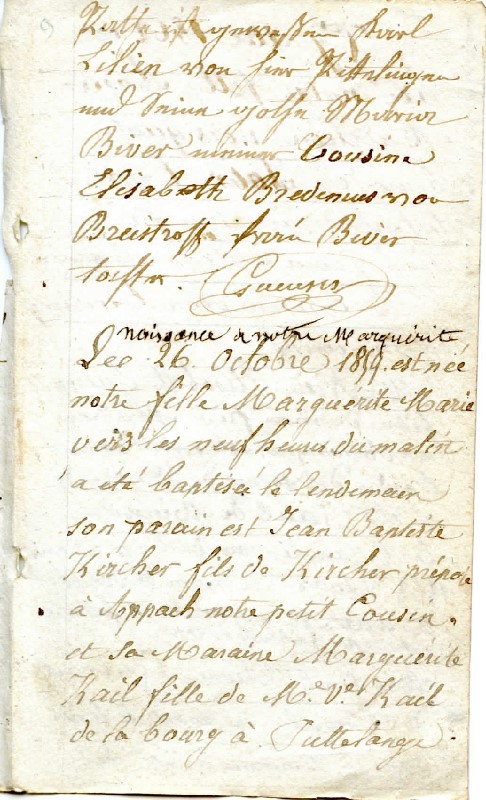 9
gewessen Karl
Lilien von hier Püttlingen
und Seine gothe Maria
Biver meiner Cousine
Elisabeth Bredimus von
Breistroff Biver
naissance de notre Marguérite
Lee 26 Octobre 1859. est née
notre fille Marguerite Marie
vers les neuf heures du matin
a été baptisée le lendemain
son parain est Jean Baptiste
Kircher fils de Kircher préposé
à Appach notre petit Cousin.
et sa Maraine Marguerite
Kail fille de Me. Ve. Kail
de la bourg à Puttelange